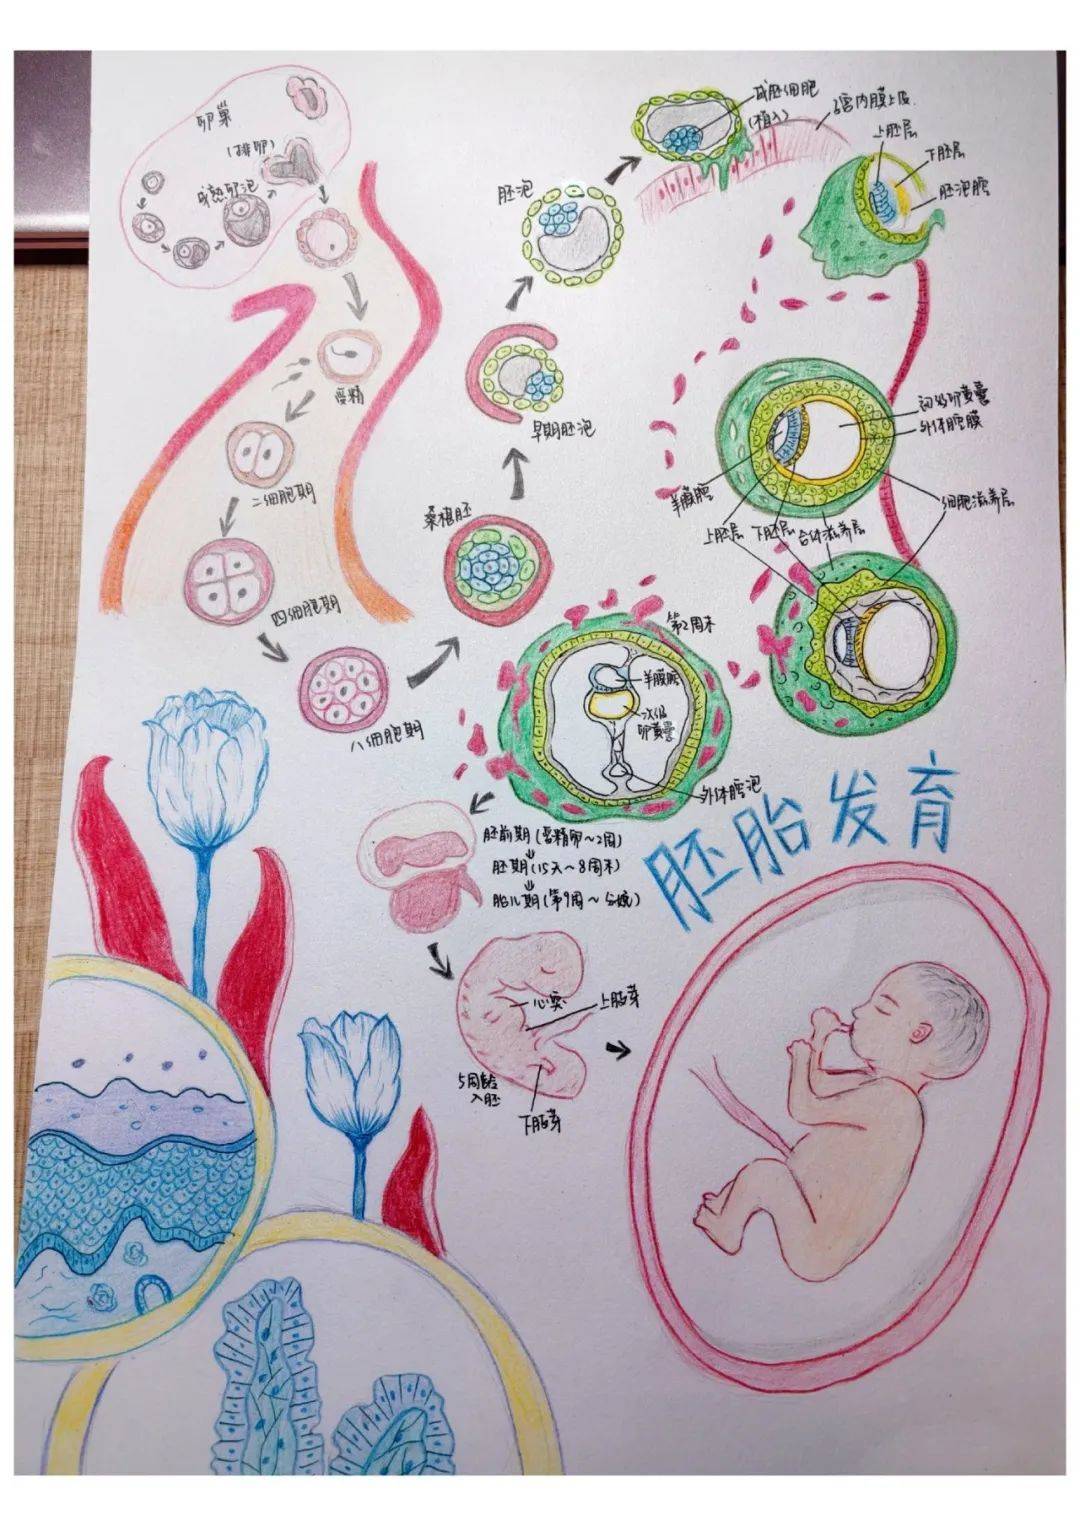 卵巢
(排卵)
成熟卵泡
受精
二细胞期
四细胞期
八细胞期
桑椹胚
早期胚泡
胚泡
成胚细胞
(植入)
子宫内膜上皮
上胚层
下胚层
胚泡腔
初级卵黄囊
外体腔膜
羊膜腔
细胞滋养层
上胚层
下胚层
合体滋养层
第2周末
羊膜腔
次级
卵黄囊
外体腔泡
胚胎发育
胚前期(受精卵~2周)
胚期(15天~8周末)
胎儿期(第9周~分娩)
心突
上肢芽
5周龄
人胚
下肢芽